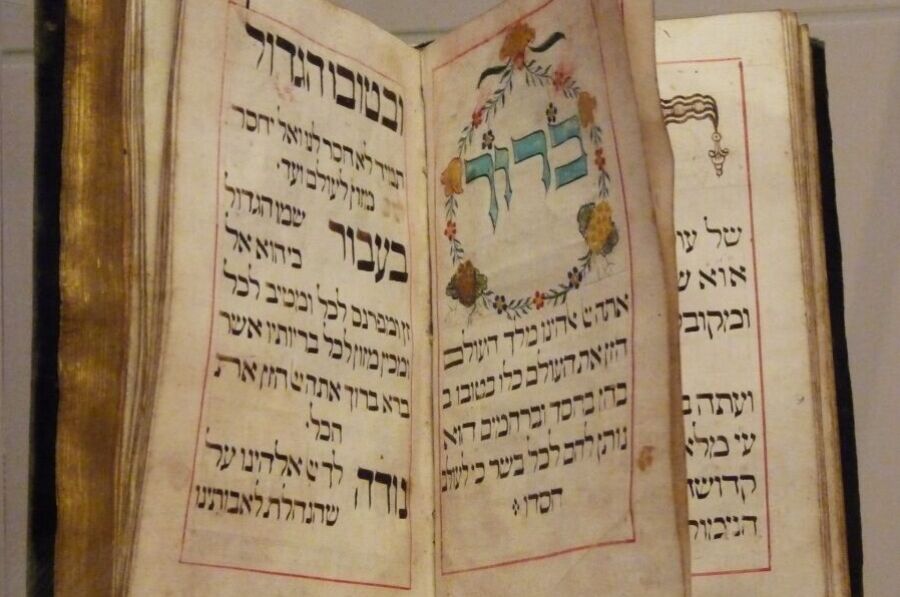 של
אוא
ועתה
עי
ברוך
אתה יי אהינו מלך העולם
הזן את העולם כלו בטובו ב
בחן בחסד וברחמים הוא
נותן לחם לכל בשר כי לעולם
חסדו
ובטובו הגדול
תמיד לא חסר לנו ואל יחסר
מזון לעולם ועד.
בעבור שמו הגדול
כי הוא אל
זן ומפרנס לכל ומטיב לכל
ומכין מזון לכל בריותיו אשר
ברא ברוך אתה יי הזן את
הכל.
נודה לך יי אלהינו על
שהנחלת לאבותינו